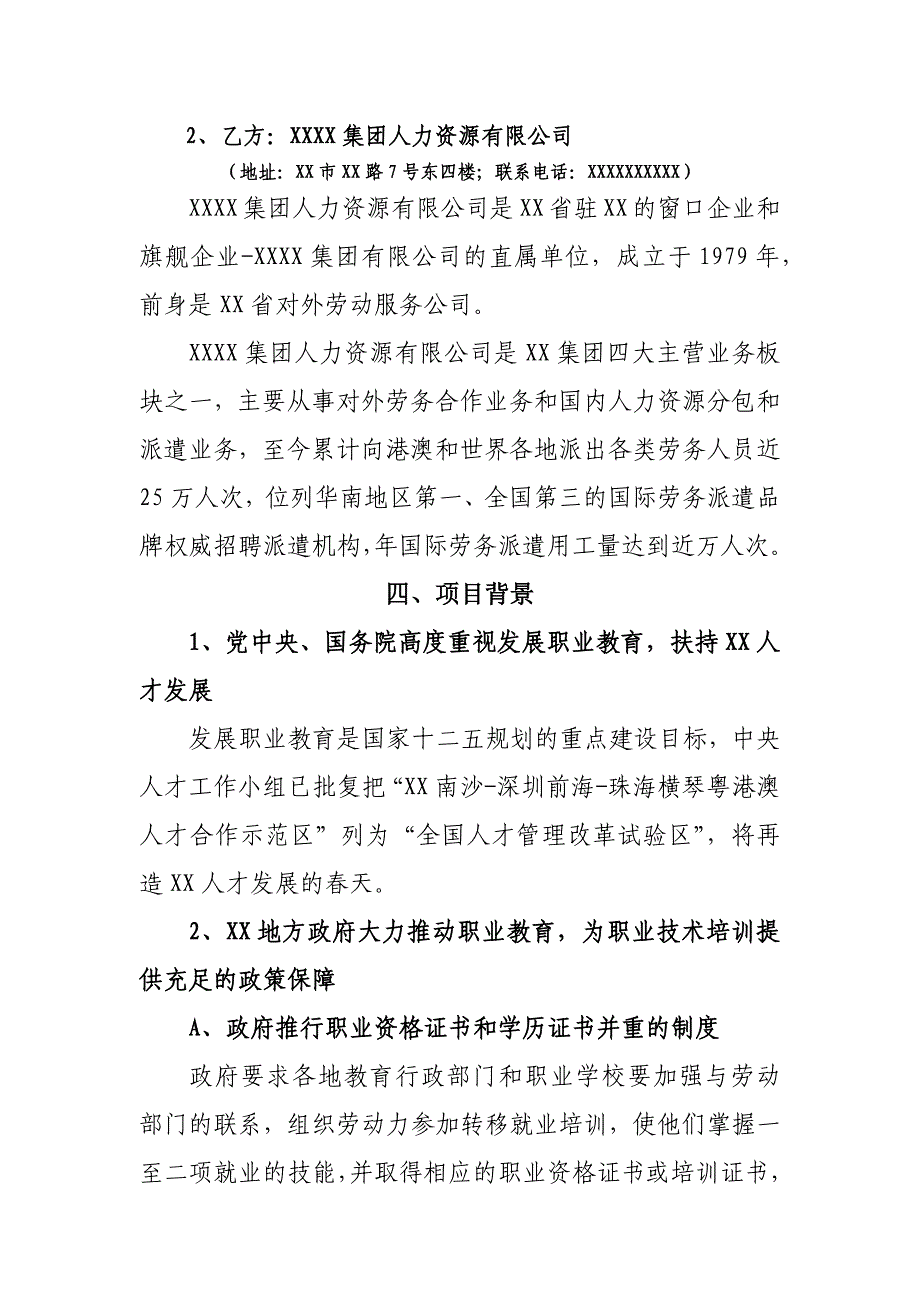 2、乙方：XXXX 集团人力资源有限公司
（地址：XX 市 XX 路 7 号东四楼；联系电话：XXXXXXXXXX）
XXXX 集团人力资源有限公司是 XX 省驻 XX 的窗口企业和
旗舰企业-XXXX 集团有限公司的直属单位，成立于 1979 年，
前身是 XX 省对外劳动服务公司。
XXXX 集团人力资源有限公司是 XX 集团四大主营业务板
块之一，主要从事对外劳务合作业务和国内人力资源分包和
派遣业务，至今累计向港澳和世界各地派出各类劳务人员近
25 万人次，位列华南地区第一、全国第三的国际劳务派遣品
牌权威招聘派遣机构，年国际劳务派遣用工量达到近万人次。
四、项目背景
1、党中央、国务院高度重视发展职业教育，扶持 XX 人
才发展
发展职业教育是国家十二五规划的重点建设目标，中央
人才工作小组已批复把“XX 南沙-深圳前海-珠海横琴粤港澳
人才合作示范区”列为“全国人才管理改革试验区”，将再
造 XX 人才发展的春天。
2、XX 地方政府大力推动职业教育，为职业技术培训提
供充足的政策保障
A、政府推行职业资格证书和学历证书并重的制度
政府要求各地教育行政部门和职业学校要加强与劳动
部门的联系，组织劳动力参加转移就业培训，使他们掌握一
至二项就业的技能，并取得相应的职业资格证书或培训证书，